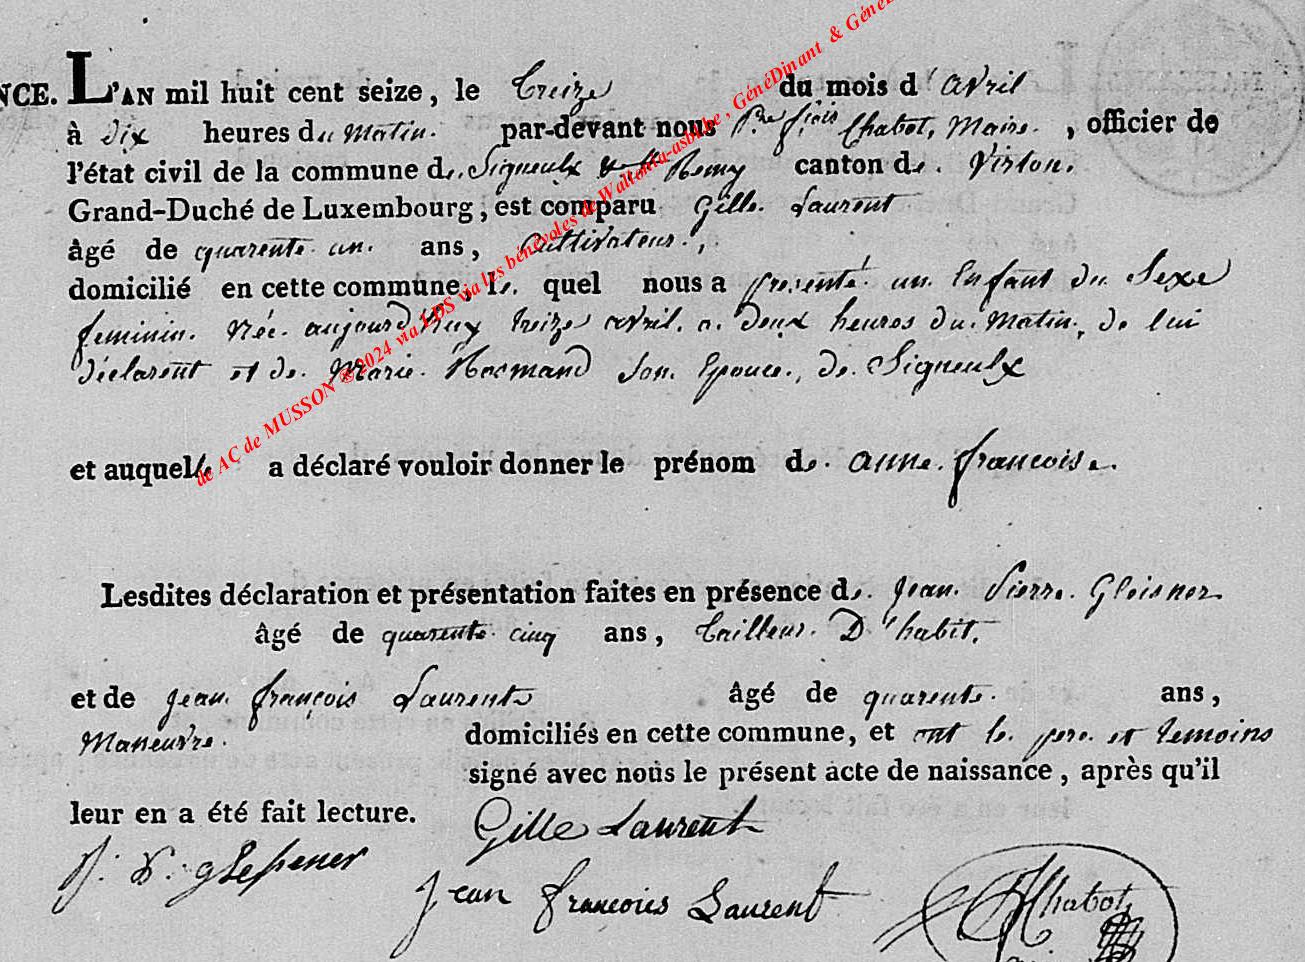 NCE. L'AN mil huit cent seize, le treize du mois d'avril
à dix heures du matin. par-devant nous Pre fçois Chabot, Maire. , officier de
l'état civil de la commune de Signeulx Remy canton de Virton.
Grand-Duché de Luxembourg, est comparu Gille Laurent
âgé de quarente un. ans, Cultivateur.,
domicilié en cette commune, le quel nous a presenté un Enfant du Sexe
feminin. Née aujourd'huy treize avril. a deux heures du Matin, de lui
déclarent et de Marie Hosmand Son Epouce, de Signeulx
et auquelle a déclaré vouloir donner le prénom de anne francoise.
Lesdites déclaration et présentation faites en présence de Jean Pierre Gleisner
âgé de quarente cinq ans, tailleur D'habit.
et de Jean françois Laurent âgé de quarente ans,
Maneuvre. domiciliés en cette commune, et ont le pere et temoins
signé avec nous le présent acte de naissance, après qu'il
leur en a été fait lecture. Gille Laurent
J. P. glesener
Jean francois Laurent Chabot
de AC de MUSSON ©2024 via LDS via les bénévoles de Wallonia-asbl.be, GénéDinant & Géné